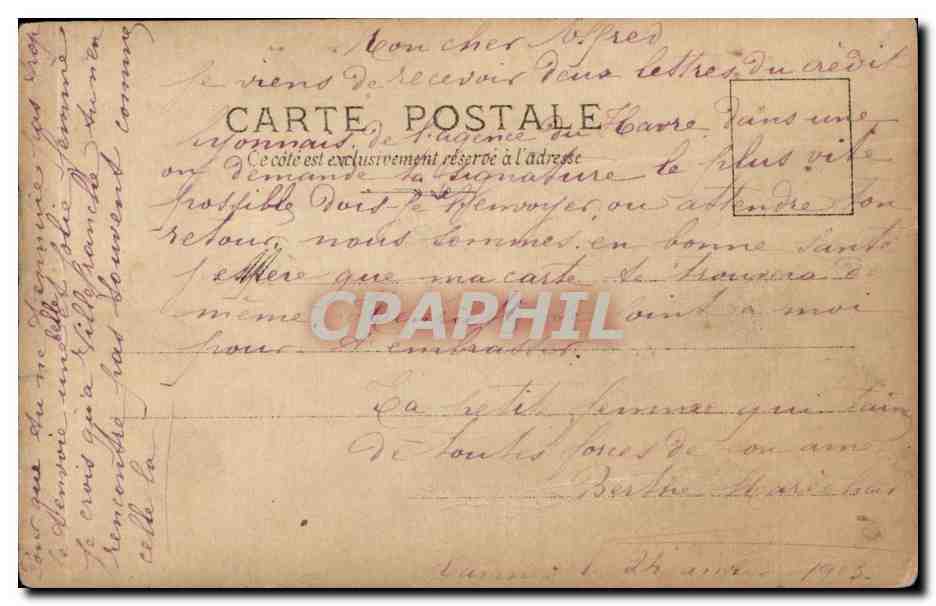 Mon cher Alfred
Je viens de recevoir deux lettres du crédit
CARTE POSTALE
lyonnais de l'agence du Havre dans une
Ce côté est exclusivement réservé à l'adresse
on demande ta signature le plus vite
possible dois-je t'envoyer, ou attendre ton
retour, nous sommes en bonne santé
j'espère que ma carte te trouvera de
même, joint à moi
pour t'embrasser.
CPAPHIL
Ta petit femme qui t'aime
de toutes forces de son ame
Berthe
24 1903
Pour que tu ne t'ennuie pas trop
je t'envoie une belle jolie femme
Je crois qu'a Villefranche tu n'en
rencontre pas souvent comme
celle la